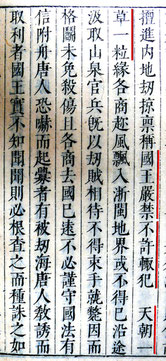 擅進內地刼掠稟稱國王嚴禁不許輙犯　天朝一
草一粒緣各商趂風飄入浙閩地界或不得已沿途
汲取山泉官兵旣以刼賊相待不得束手就斃因而
格鬬未免殺傷且各商去國已遠不必謹守國法有
信附舟唐人恐嚇而起釁者有被刼海唐人敎誘而
取利者國王實不知聞聞則必根查之而種誅之如